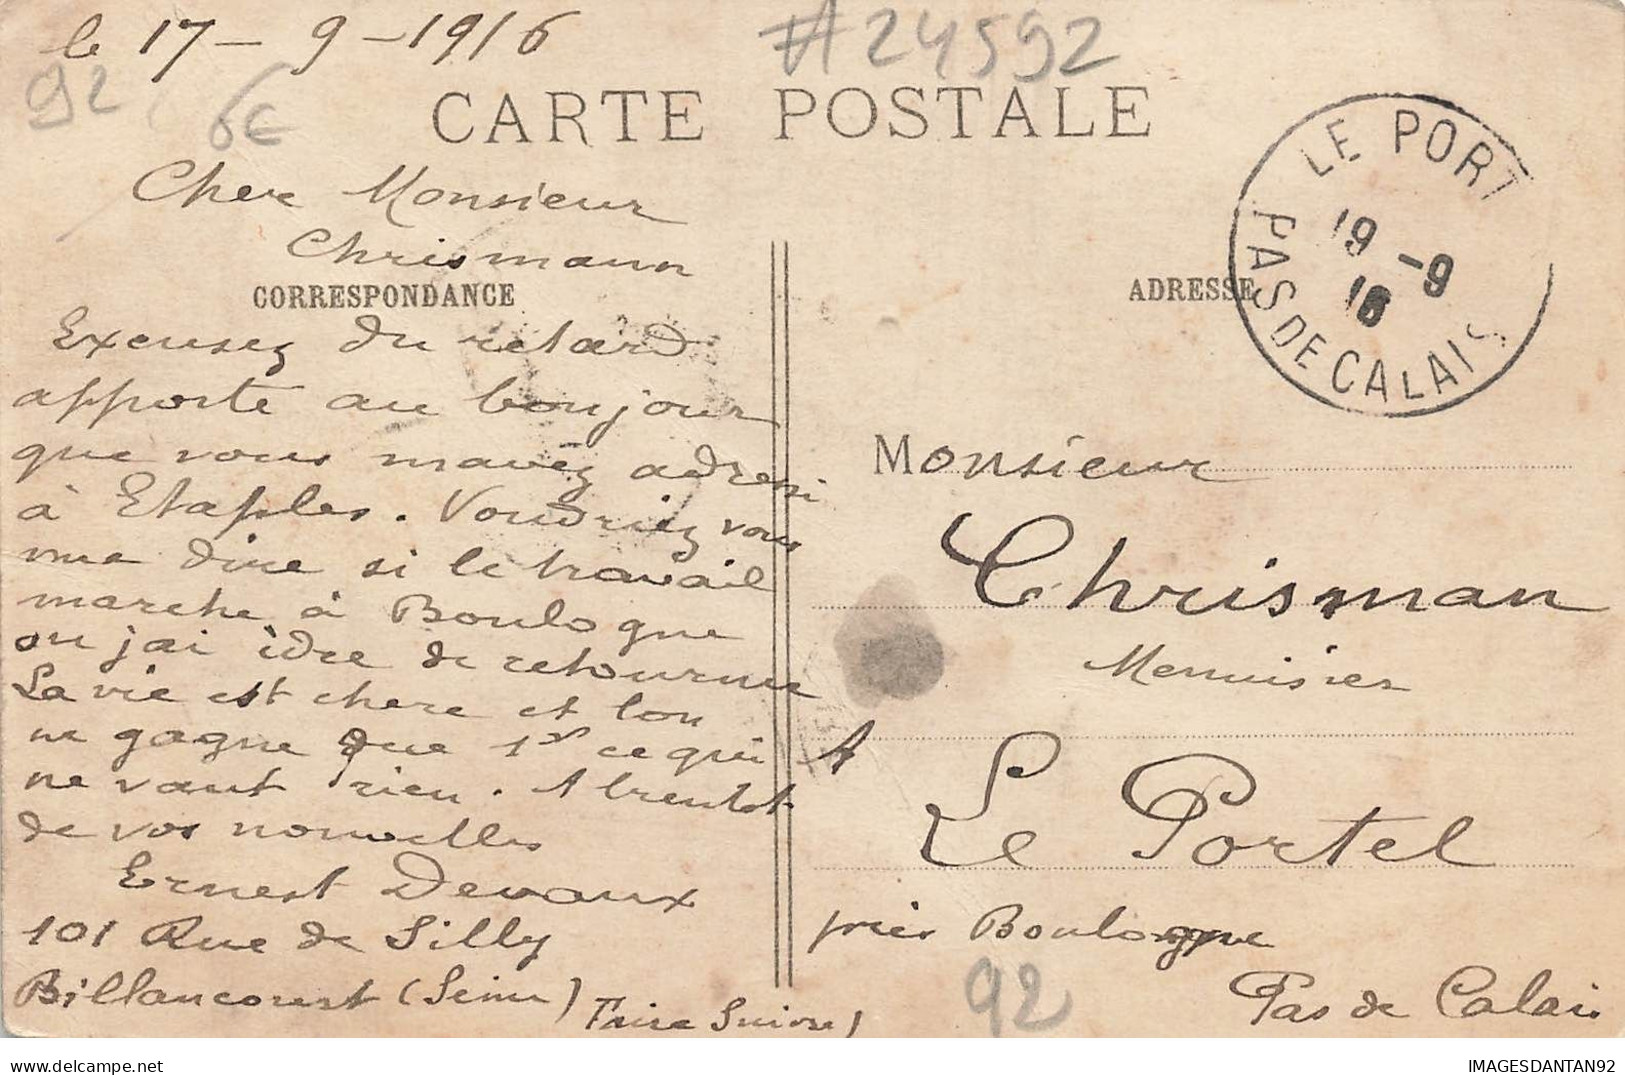 le 17 - 9 - 1916
#24592
92
6€
CARTE POSTALE
Cher Monsieur
Chrismann
CORRESPONDANCE
Excusez du retard
apporté au bonjour
que vous m'avez adressé
à Etaples. Voudriez vous
me dire si le travail
marche à Boulogne
ou j'ai idée de retourner
La vie est chere et lon
ne gagne que 1 ce qui
ne vaut rien. A bientot
de vos nouvelles
Ernest Devaux
101 Rue de Silly
Billancourt (Seine)
Faire Suivre)
LE PORTEL
19 -9
16
PAS DE CALAIS
ADRESSE
Monsieur
Chrisman
Menuisier
A
Le Portel
près Boulogne
92
Pas de Calais
IMAGESDANTAN92